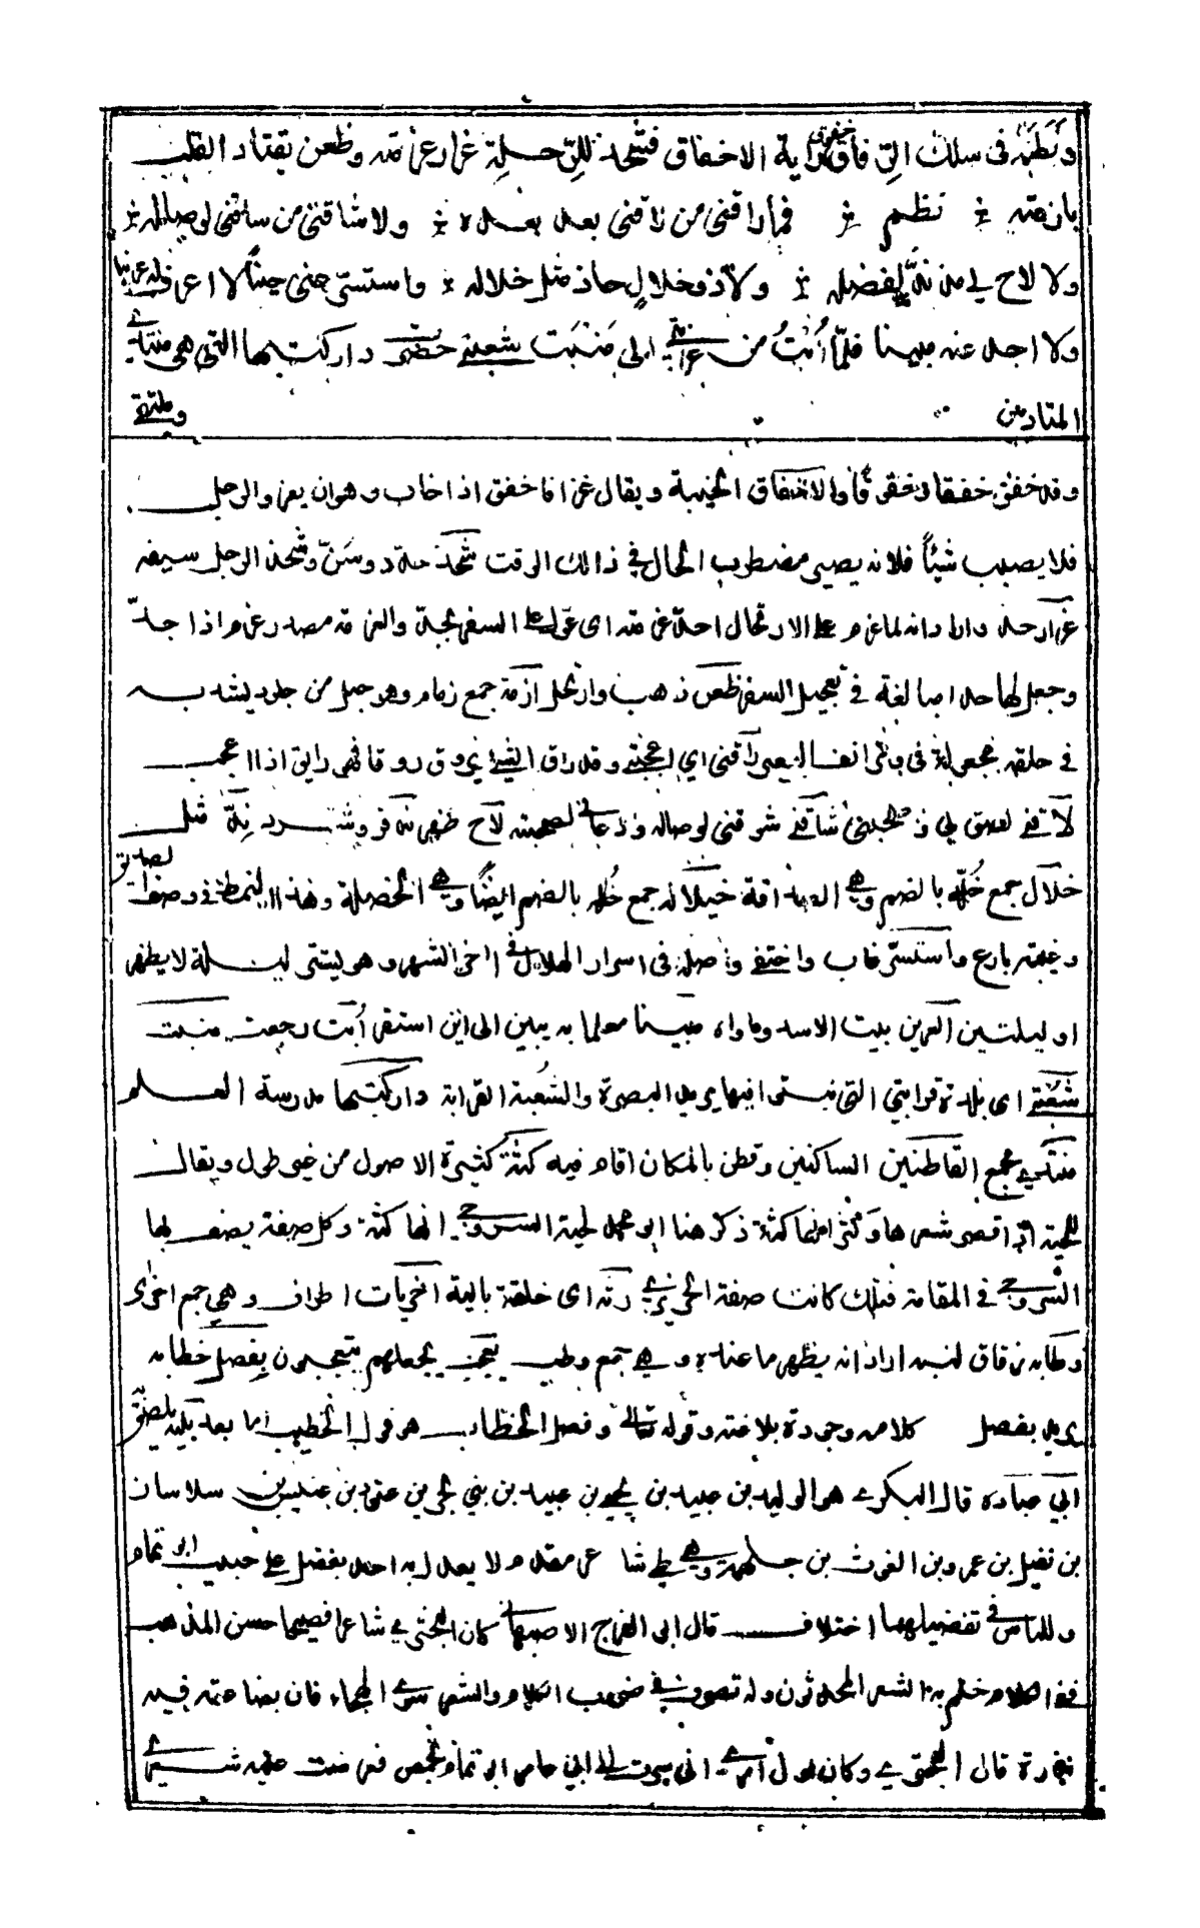 ونظمه في سلك الرفاق خفوق راية الاخفاق فشحذ للرحلة غرار عزمته وظعن يقتاد القلب
بازمته نظم فما راقني من لاقني بعد بعده ولا شاقني من ساقني لوصاله
ولا لاح لي مذ ند ند لفضله ولا ذو خلال حاز مثل خلاله واستسر عني حينا لا اعرف له عرينا
ولا اجد عنه مبينا فلما أُبتُ من غربتي الى منبت شعبتي حضرت دار كتبها التي هي منتدى
المتادبين وملتقى
وقد خفق خفقا وخفوقا والاخفاق الخيبة ويقال غزا فاخفق اذا خاب وهو ان يغزو الرجل
فلا يصيب شيئاً فلانه يصير مضطرب الحال في ذالك الوقت شحذ حدد وسَنّ وشحذ الرجل سيفه
غرار حد وارا دانه لما عزم على الارتحال احد عزمته اى عول على السفر بجد والعزمة مصدر عزم اذا جدّ
وجعل لها حدا مبالغة في تعجيل السفر ظعن ذهب وارتحل ازمة جمع زمام وهو حبل من جلود يشد به
في حلقة مجعولة في وتر انف البعير راقني اي اعجبني وقد راق الشئ يروق روقا فهو رايق اذا اعجب
لاقني لصق بي وحبسني شاقني شوقني لوصاله ودعاني لصحبته لاح ظهر ند فر وشرد نِدّ مثل
خلال جمع خُلّة بالضم وهي الصداقة خلاله جمع خُله بالضم ايضاً وهي الخصلة وهذا النمط في وصف لصديق
وغيبته بارع واستسر غاب واختفى واصله في اسرار الهلال في اخر الشهر وهو ليستتر ليلة لا يظهر
او ليلتين العرين بيت الاسد وماواه مبينا معلما به يبين الى اين استقر أُبت رجعت منبت
شعبتي اى بلدة قرابتي التي نبتوا فيها يريد البصرة والشعبة القرابة دار كتبها مدرسة العلم
منتدى مجمع القاطنين الساكنين وقطن بالمكان اقام فيه كثة كثيرة الاصول من غير طول ويقال
للحية اذا قصر شعرها وكثر انها كثة ذكر هنا ابو محمد لحية السروجي انها كثة وكل صفة يصف بها
السروجي في المقامة فتلك كانت صفة الحريري رثه اى خلقة بالية اخريات اطراف وهي جمع اخرى
وطابه زقاق لبنه اراد انه يظهر ما عنده وهي جمع وطب يعجب يجعلهم يتعجبون بفصل خطابه
يريد بفصل كلامه وجودة بلاغته وقوله تعالى وفصل الخطاب هو قول الخطيب اما بعد يليه يلصق
ابي عبادة قال البكري هو الوليد بن عبيد بن يحيى بن عبيد بن بني بحر بن عتود بن عنيس بن سلاسان
بن نفيل بن عمرو بن الغوث بن جلهمة وهي طي شاعر مقدم لا يعدل به احد بفضل على حبيب ابو تمام
وللناس في تفضيلهما اختلاف قال ابو الفرج الاصبهاني كان البحتري شاعرا فصيحا حسن المذهب
نقي الكلام ختم به الشعر المحدثون وله تصرف في ضروب الكلام والشعر سوى الهجاء فان بضاعته فيه
نزرة قال البحتري وكان اول امري اني سرت الى ابي تمام بحمص فعرضت عليه شعري